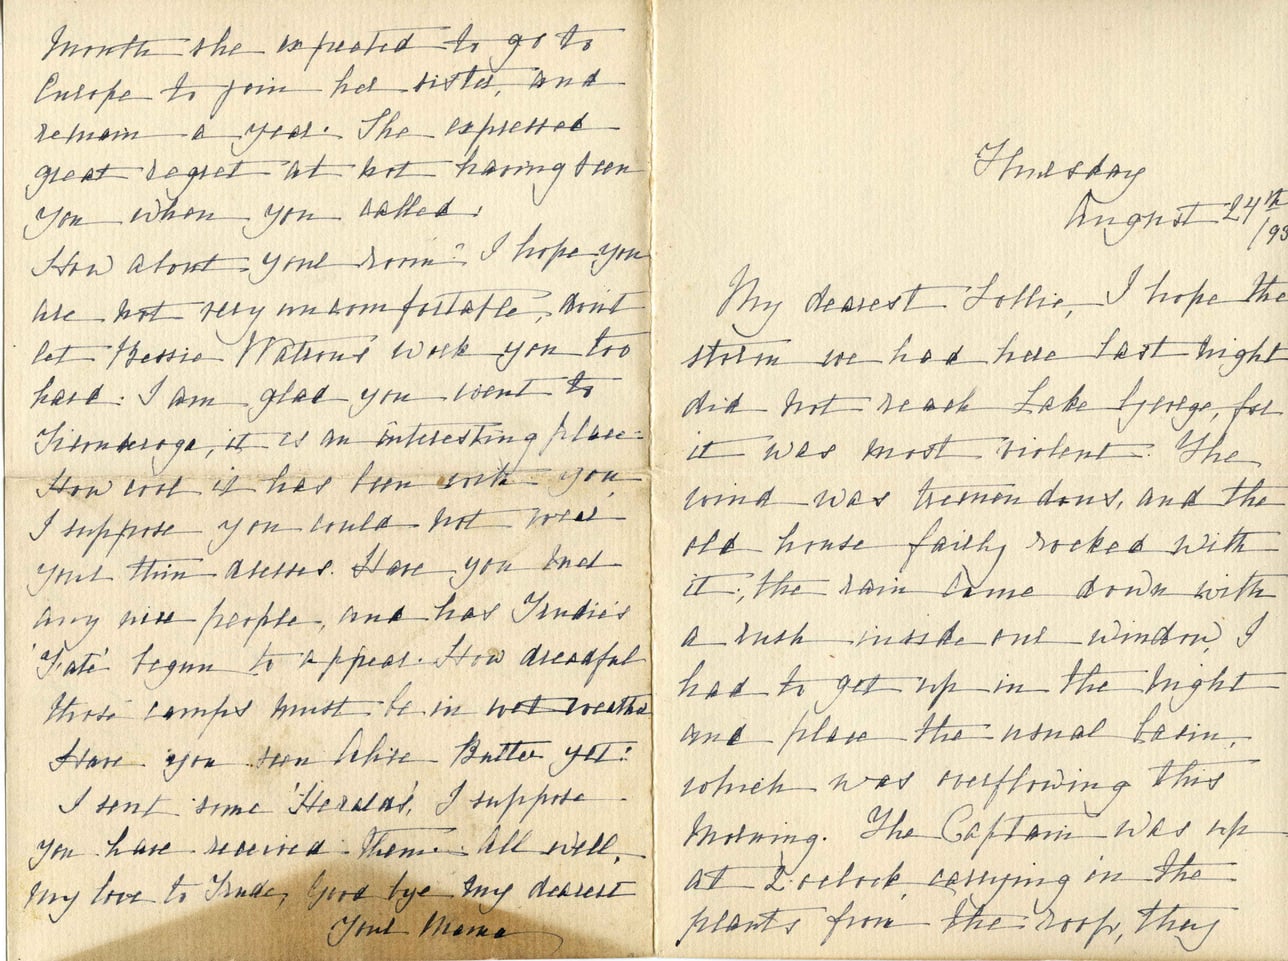 Month she expected to go to
Europe to join her sister, and
remain a year. She expressed
great regret at not having seen
you when you called.
How about your room? I hope you
are not very uncomfortable, don't
let Bessie Watrous work you too
hard. I am glad you went to
Ticonderoga, it is an interesting place-
How cool it has been with you,
I suppose you could not wear
your thin dresses. Have you met
any nice people, and has Trudie's
'Fate' begun to appear. How dreadful
those camps must be in wet weather
Have you seen Alice Butler yet?
I sent some 'Heralds', I suppose
you have received them. All well,
My love to Trude, Good bye my dearest
Your Mama
Thursday
August 24th
/93
My dearest Lollie, I hope the
storm we had here last night
did not reach Lake George, for
it was most violent. The
wind was tremendous, and the
old house fairly rocked with
it; the rain came down with
a rush inside our window, I
had to get up in the night
and place the usual basin,
which was overflowing this
morning. The Captain was up
at 2 oclock carrying in the
plants from the roof, they